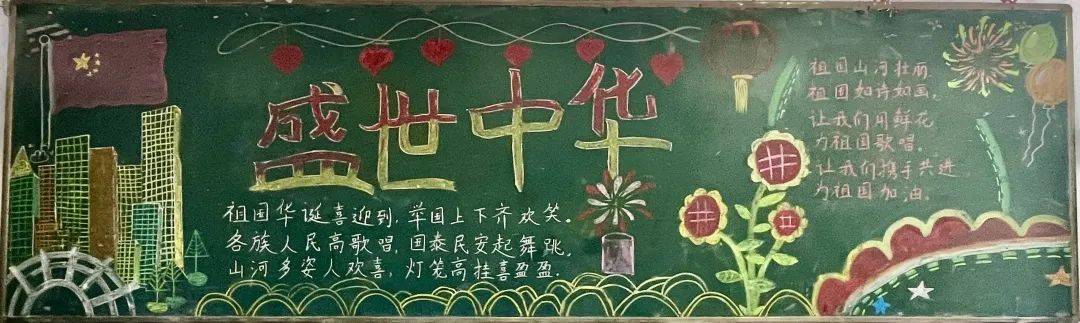 盛世中华
祖国华诞喜迎到,举国上下齐欢笑。
各族人民高歌唱,国泰民安起舞跳。
山河多姿人欢喜,灯笼高挂喜盈盈.
祖国山河壮丽
祖国如诗如画,
让我们用鲜花
为祖国歌唱。
让我们携手共进
为祖国加油。